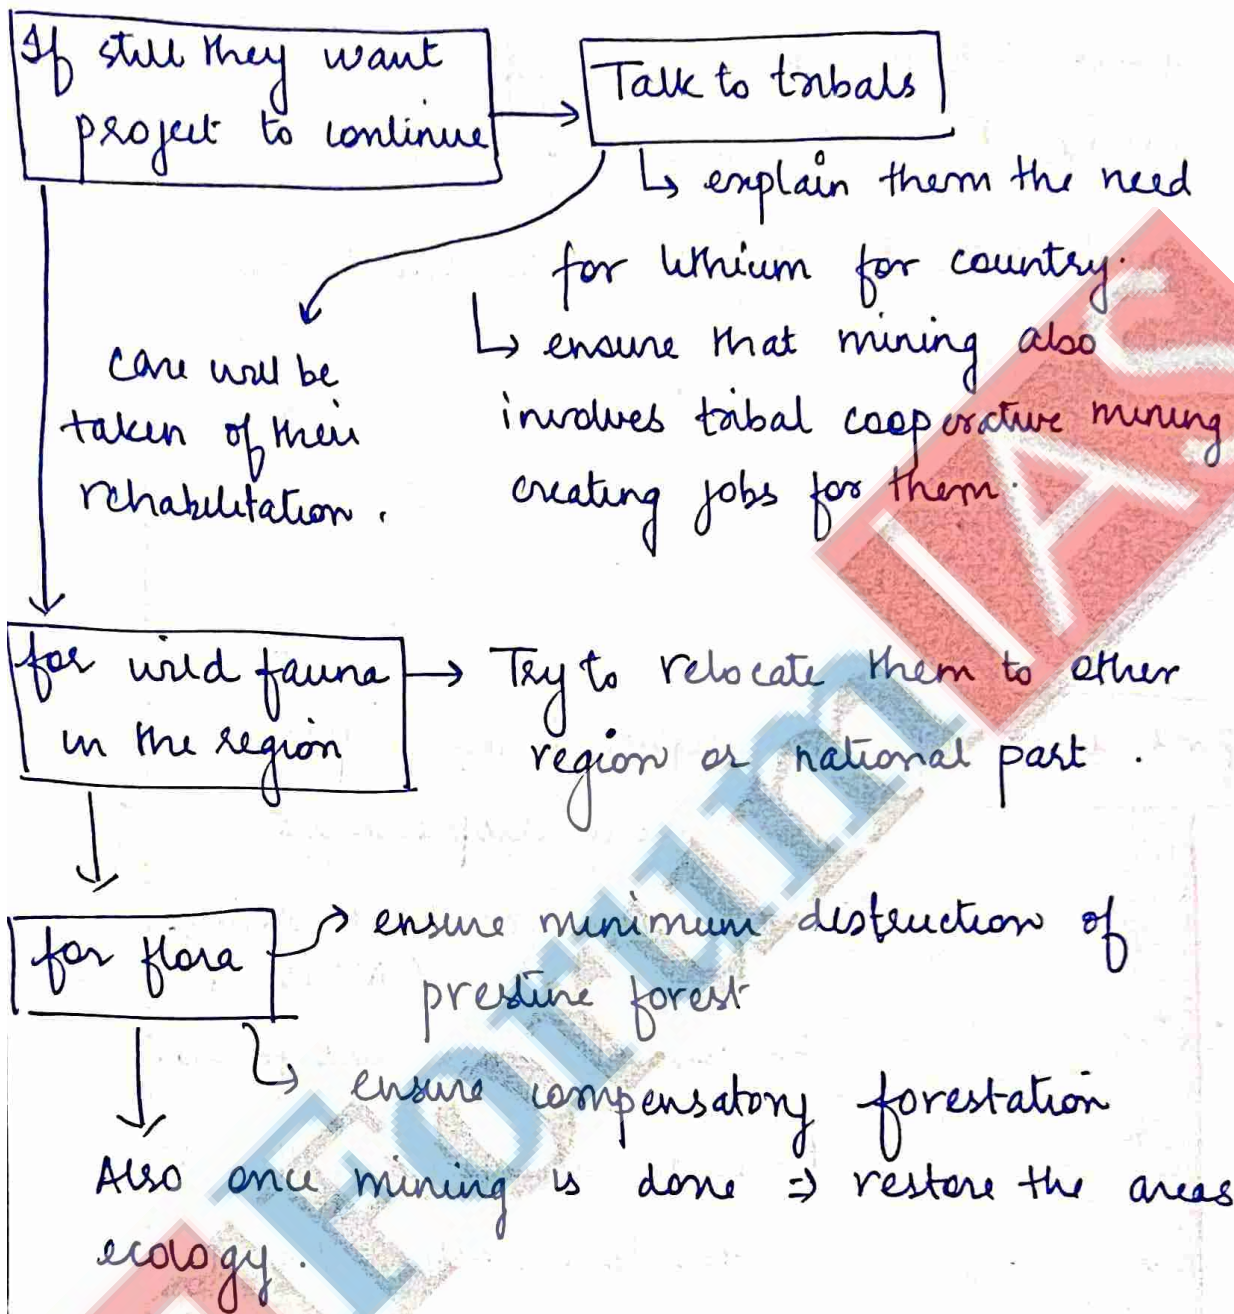 If still they want
project to continue
Talk to tribals
↳ explain them the need
for lithium for country.
↳ ensure that mining also
involves tribal cooperative mining
creating jobs for them.
care will be
taken of their
rehabilitation.
for wild fauna
in the region
→ Try to relocate them to other
region or national part.
for flora
→ ensure minimum destruction of
prestine forest
↳ ensure compensatory forestation
Also once mining is done ⇒ restore the areas
ecology.
Forum IAS